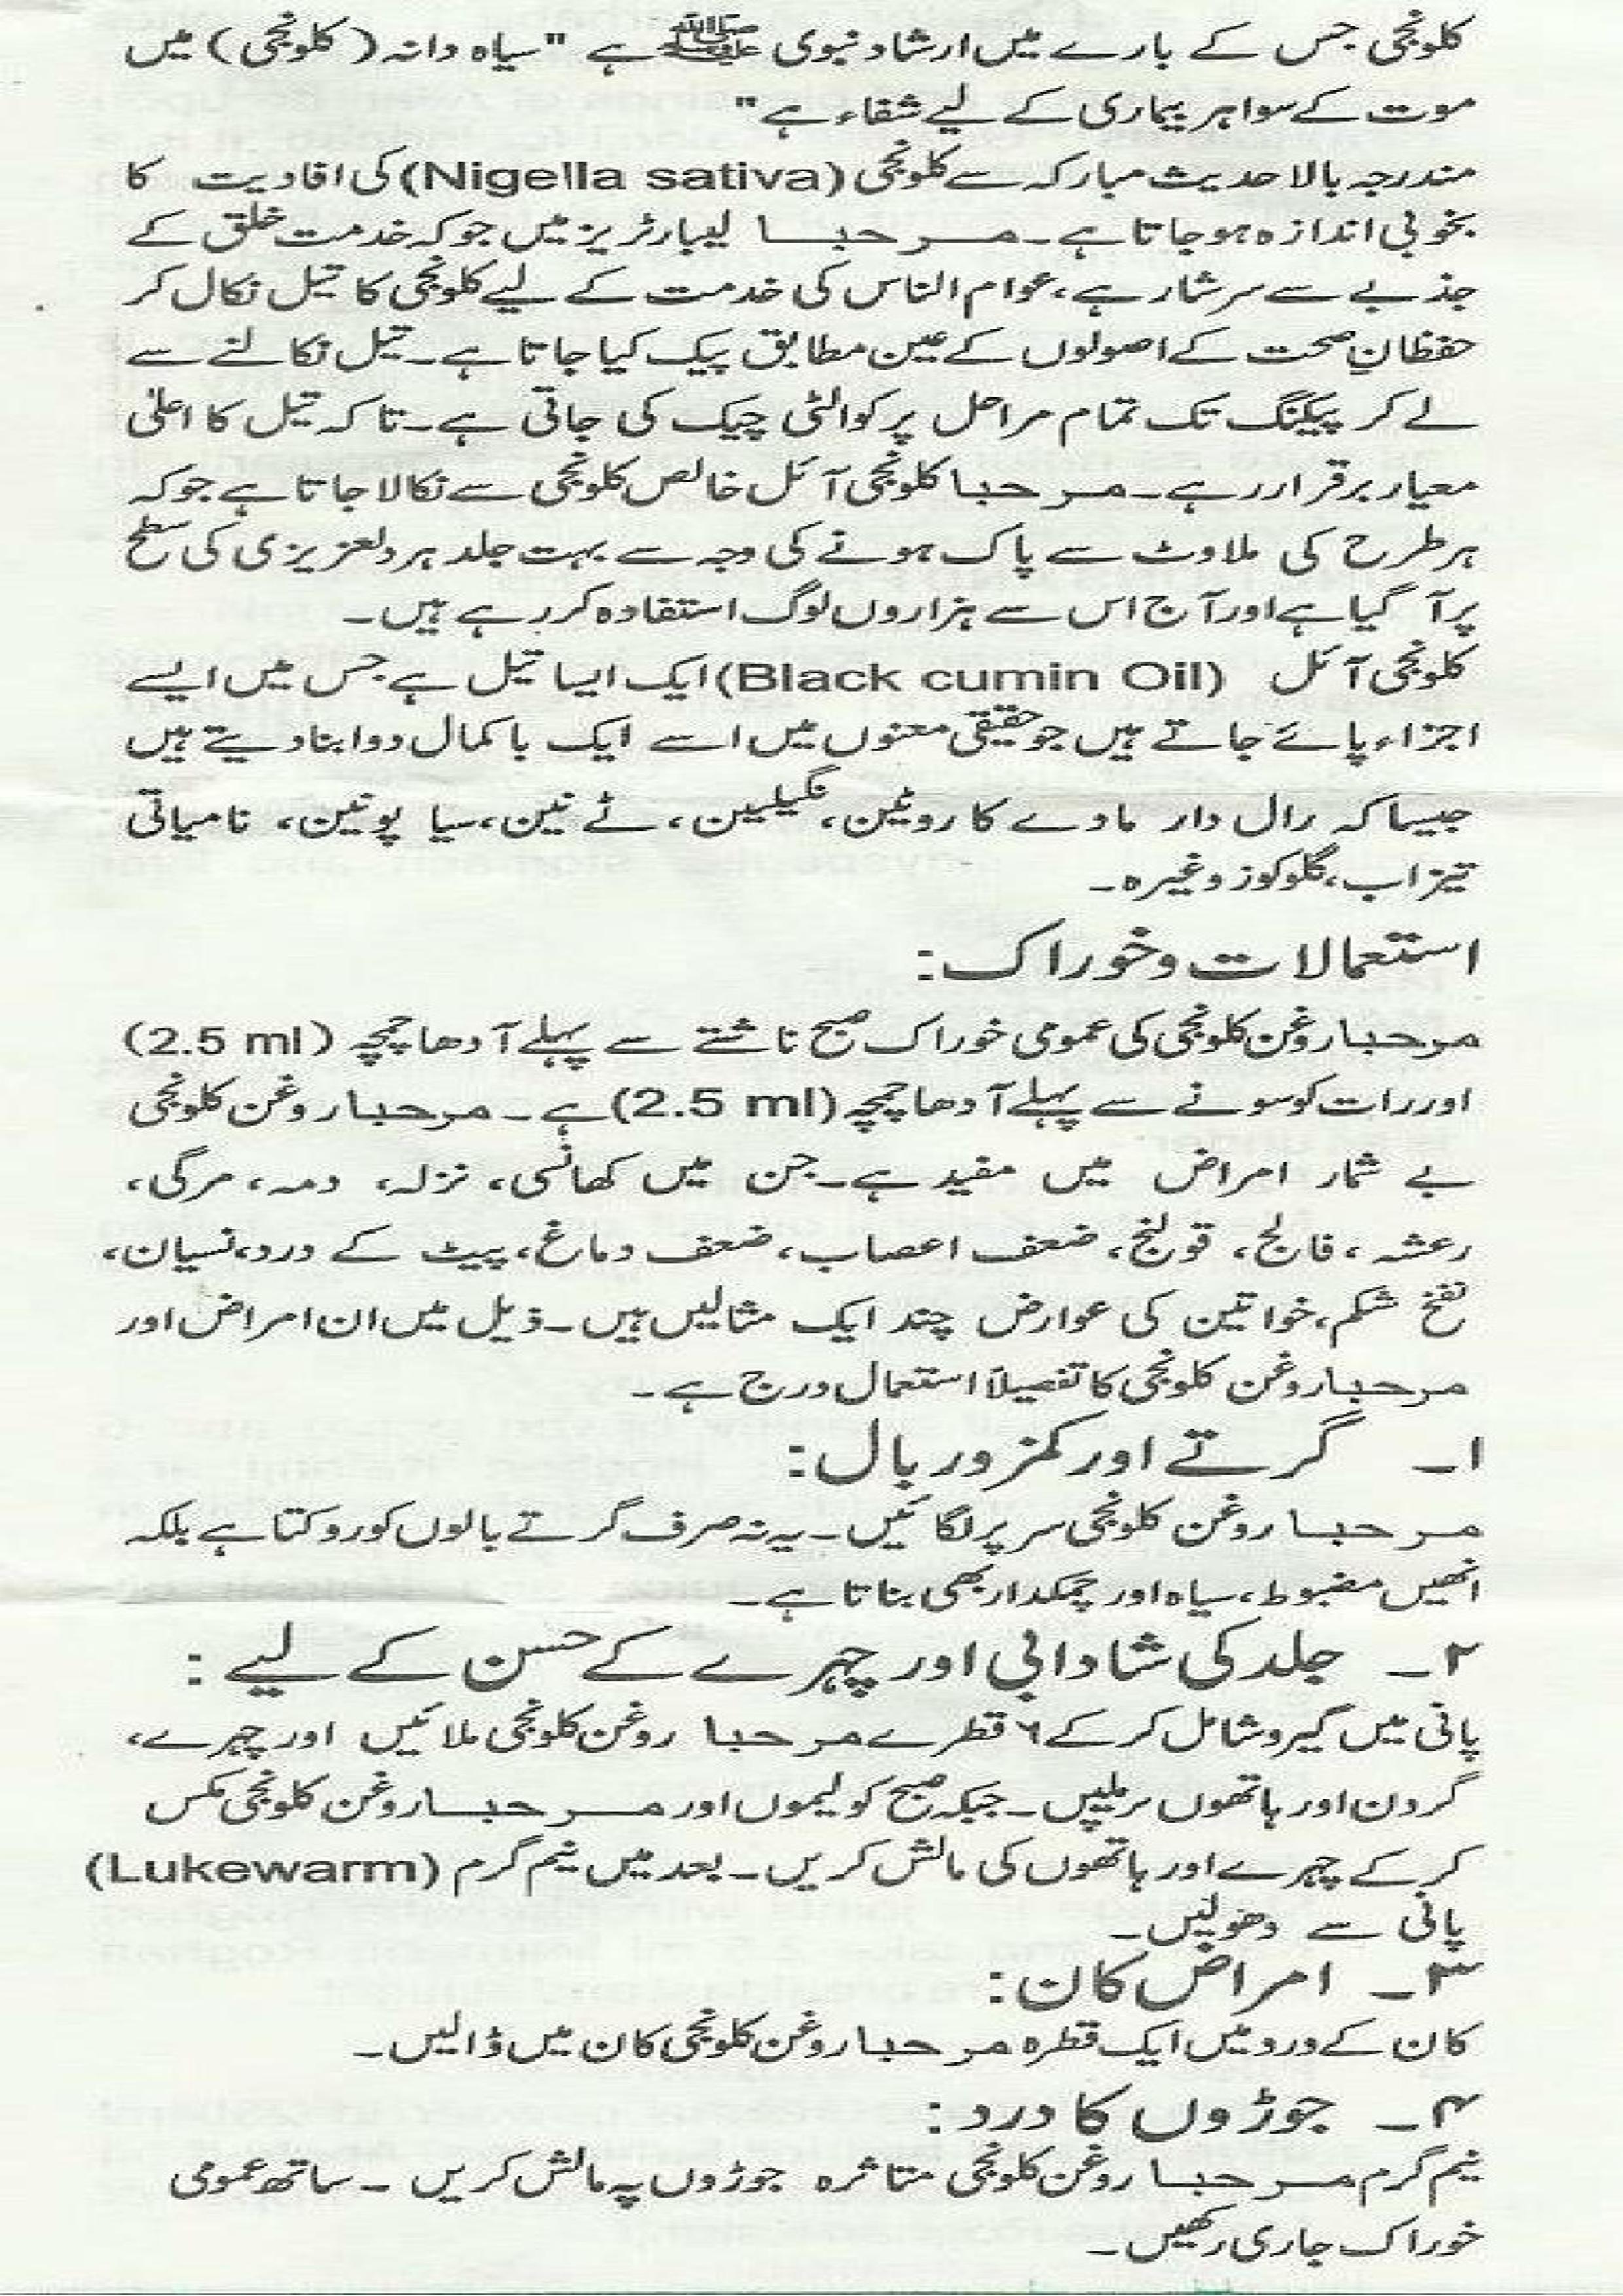 کلونجی جس کے بارے میں ارشاد نبوی ﷺ ہے "سیاہ دانہ (کلونجی) میں
موت کے سوا ہر بیماری کے لیے شفاء ہے"
مندرجہ بالا حدیث مبارکہ سے کلونجی (Nigella sativa) کی افادیت کا
بخوبی اندازہ ہو جاتا ہے۔ مرحبا لیبارٹریز میں جو کہ خدمت خلق کے
جذبے سے سرشار ہے، عوام الناس کی خدمت کے لیے کلونجی کا تیل نکال کر
حفظان صحت کے اصولوں کے عین مطابق پیک کیا جاتا ہے۔ تیل نکالنے سے
لے کر پیکنگ تک تمام مراحل پر کوالٹی چیک کی جاتی ہے۔ تاکہ تیل کا اعلیٰ
معیار برقرار رہے۔ مرحبا کلونجی آئل خالص کلونجی سے نکالا جاتا ہے جو کہ
ہر طرح کی ملاوٹ سے پاک ہونے کی وجہ سے بہت جلد ہر دلعزیزی کی سطح
پر آ گیا ہے اور آج اس سے ہزاروں لوگ استفادہ کر رہے ہیں۔
کلونجی آئل (Black cumin Oil) ایک ایسا تیل ہے جس میں ایسے
اجزاء پائے جاتے ہیں جو حقیقی معنوں میں اسے ایک باکمال دوا بنا دیتے ہیں
جیسا کہ رال دار مادے کاروٹین، نگیلین، ٹے نین، سیا پونین، نامیاتی
تیزاب، گلوکوز وغیرہ۔
استعمالات و خوراک:
مرحبا روغن کلونجی کی عمومی خوراک صبح ناشتے سے پہلے آدھا چمچہ (2.5 ml)
اور رات کو سونے سے پہلے آدھا چمچہ (2.5 ml) ہے۔ مرحبا روغن کلونجی
بے شمار امراض میں مفید ہے۔ جن میں کھانسی، نزلہ، دمہ، مرگی،
رعشہ، فالج، قولنج، ضعف اعصاب، ضعف دماغ، پیٹ کے درد، نسیان،
نفخ شکم، خواتین کی عوارض چند ایک مثالیں ہیں۔ ذیل میں ان امراض اور
مرحبا روغن کلونجی کا تفصیلاً استعمال درج ہے۔
۱۔ گرتے اور کمزور بال:
مرحبا روغن کلونجی سر پر لگائیں۔ یہ نہ صرف گرتے بالوں کو روکتا ہے بلکہ
انھیں مضبوط، سیاہ اور چمکدار بھی بناتا ہے۔
۲۔ جلد کی شادابی اور چہرے کے حسن کے لیے:
پانی میں گیرو شامل کر کے ۶ قطرے مرحبا روغن کلونجی ملائیں اور چہرے،
گردن اور ہاتھوں پر ملیں۔ جبکہ صبح کو لیموں اور مرحبا روغن کلونجی مکس
کر کے چہرے اور ہاتھوں کی مالش کریں۔ بعد میں نیم گرم (Lukewarm)
پانی سے دھولیں۔
۳۔ امراض کان:
کان کے درد میں ایک قطرہ مرحبا روغن کلونجی کان میں ڈالیں۔
۴۔ جوڑوں کا درد:
نیم گرم مرحبا روغن کلونجی متاثرہ جوڑوں پہ مالش کریں۔ ساتھ عمومی
خوراک جاری رکھیں۔